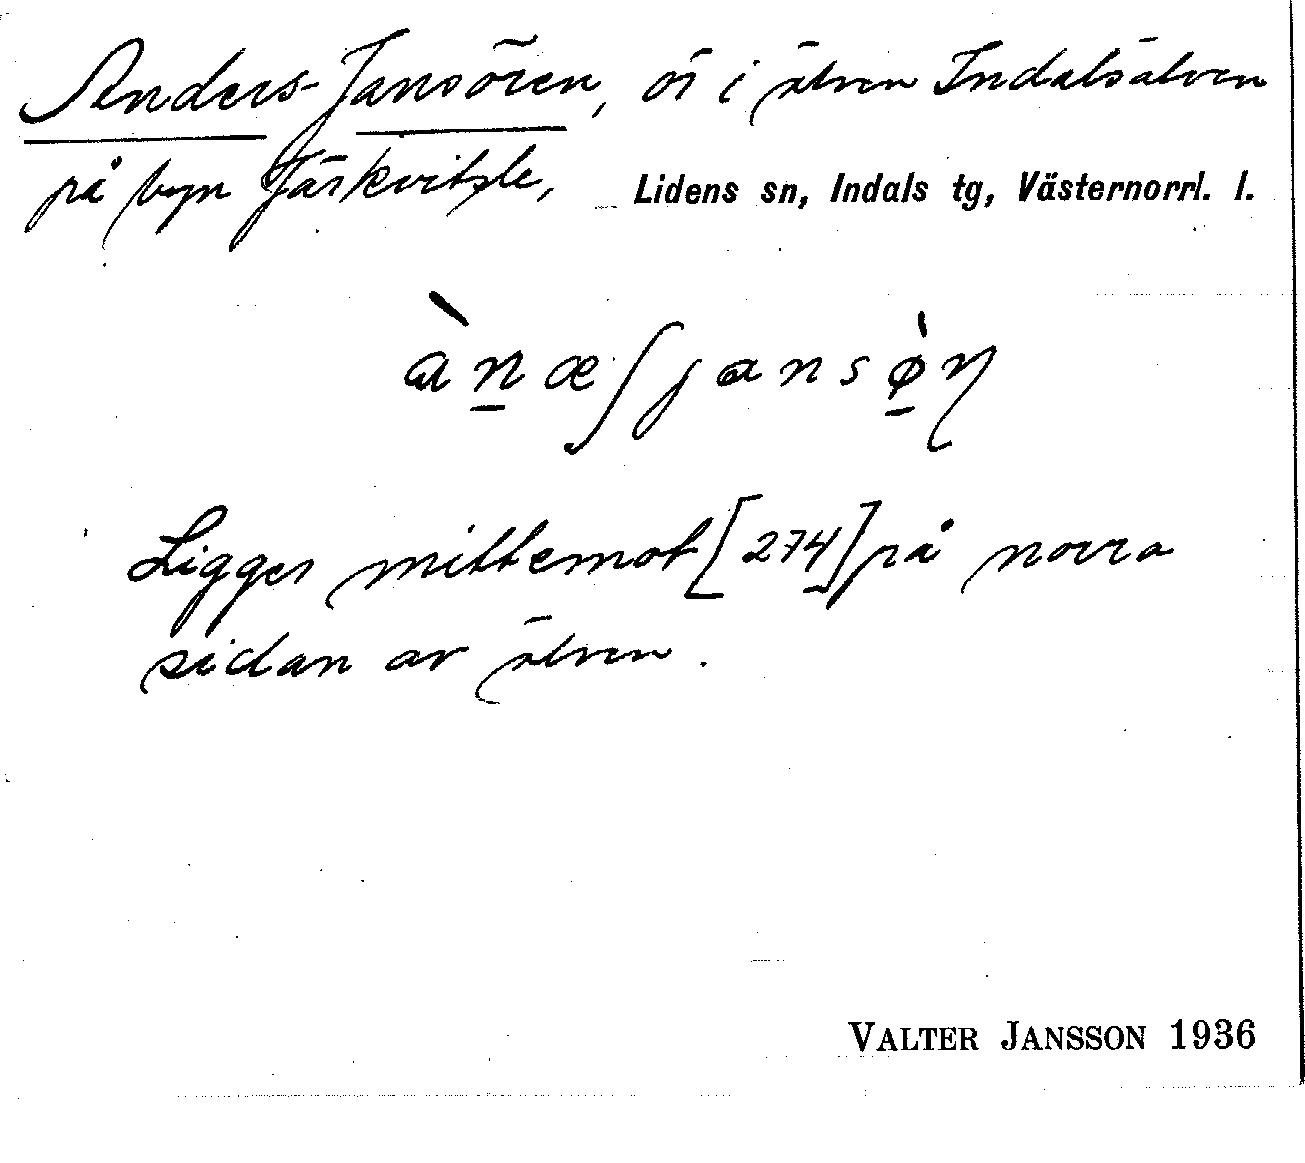 Anders-Jansören, ör i älven Indalsälven
på byn Järkvitsle, Lidens sn, Indals tg, Västernorrl. l.
àn̲æʃjansø̲̀ŋ
Ligger mittemot [274] på norra
sidan av älven.
VALTER JANSSON 1936